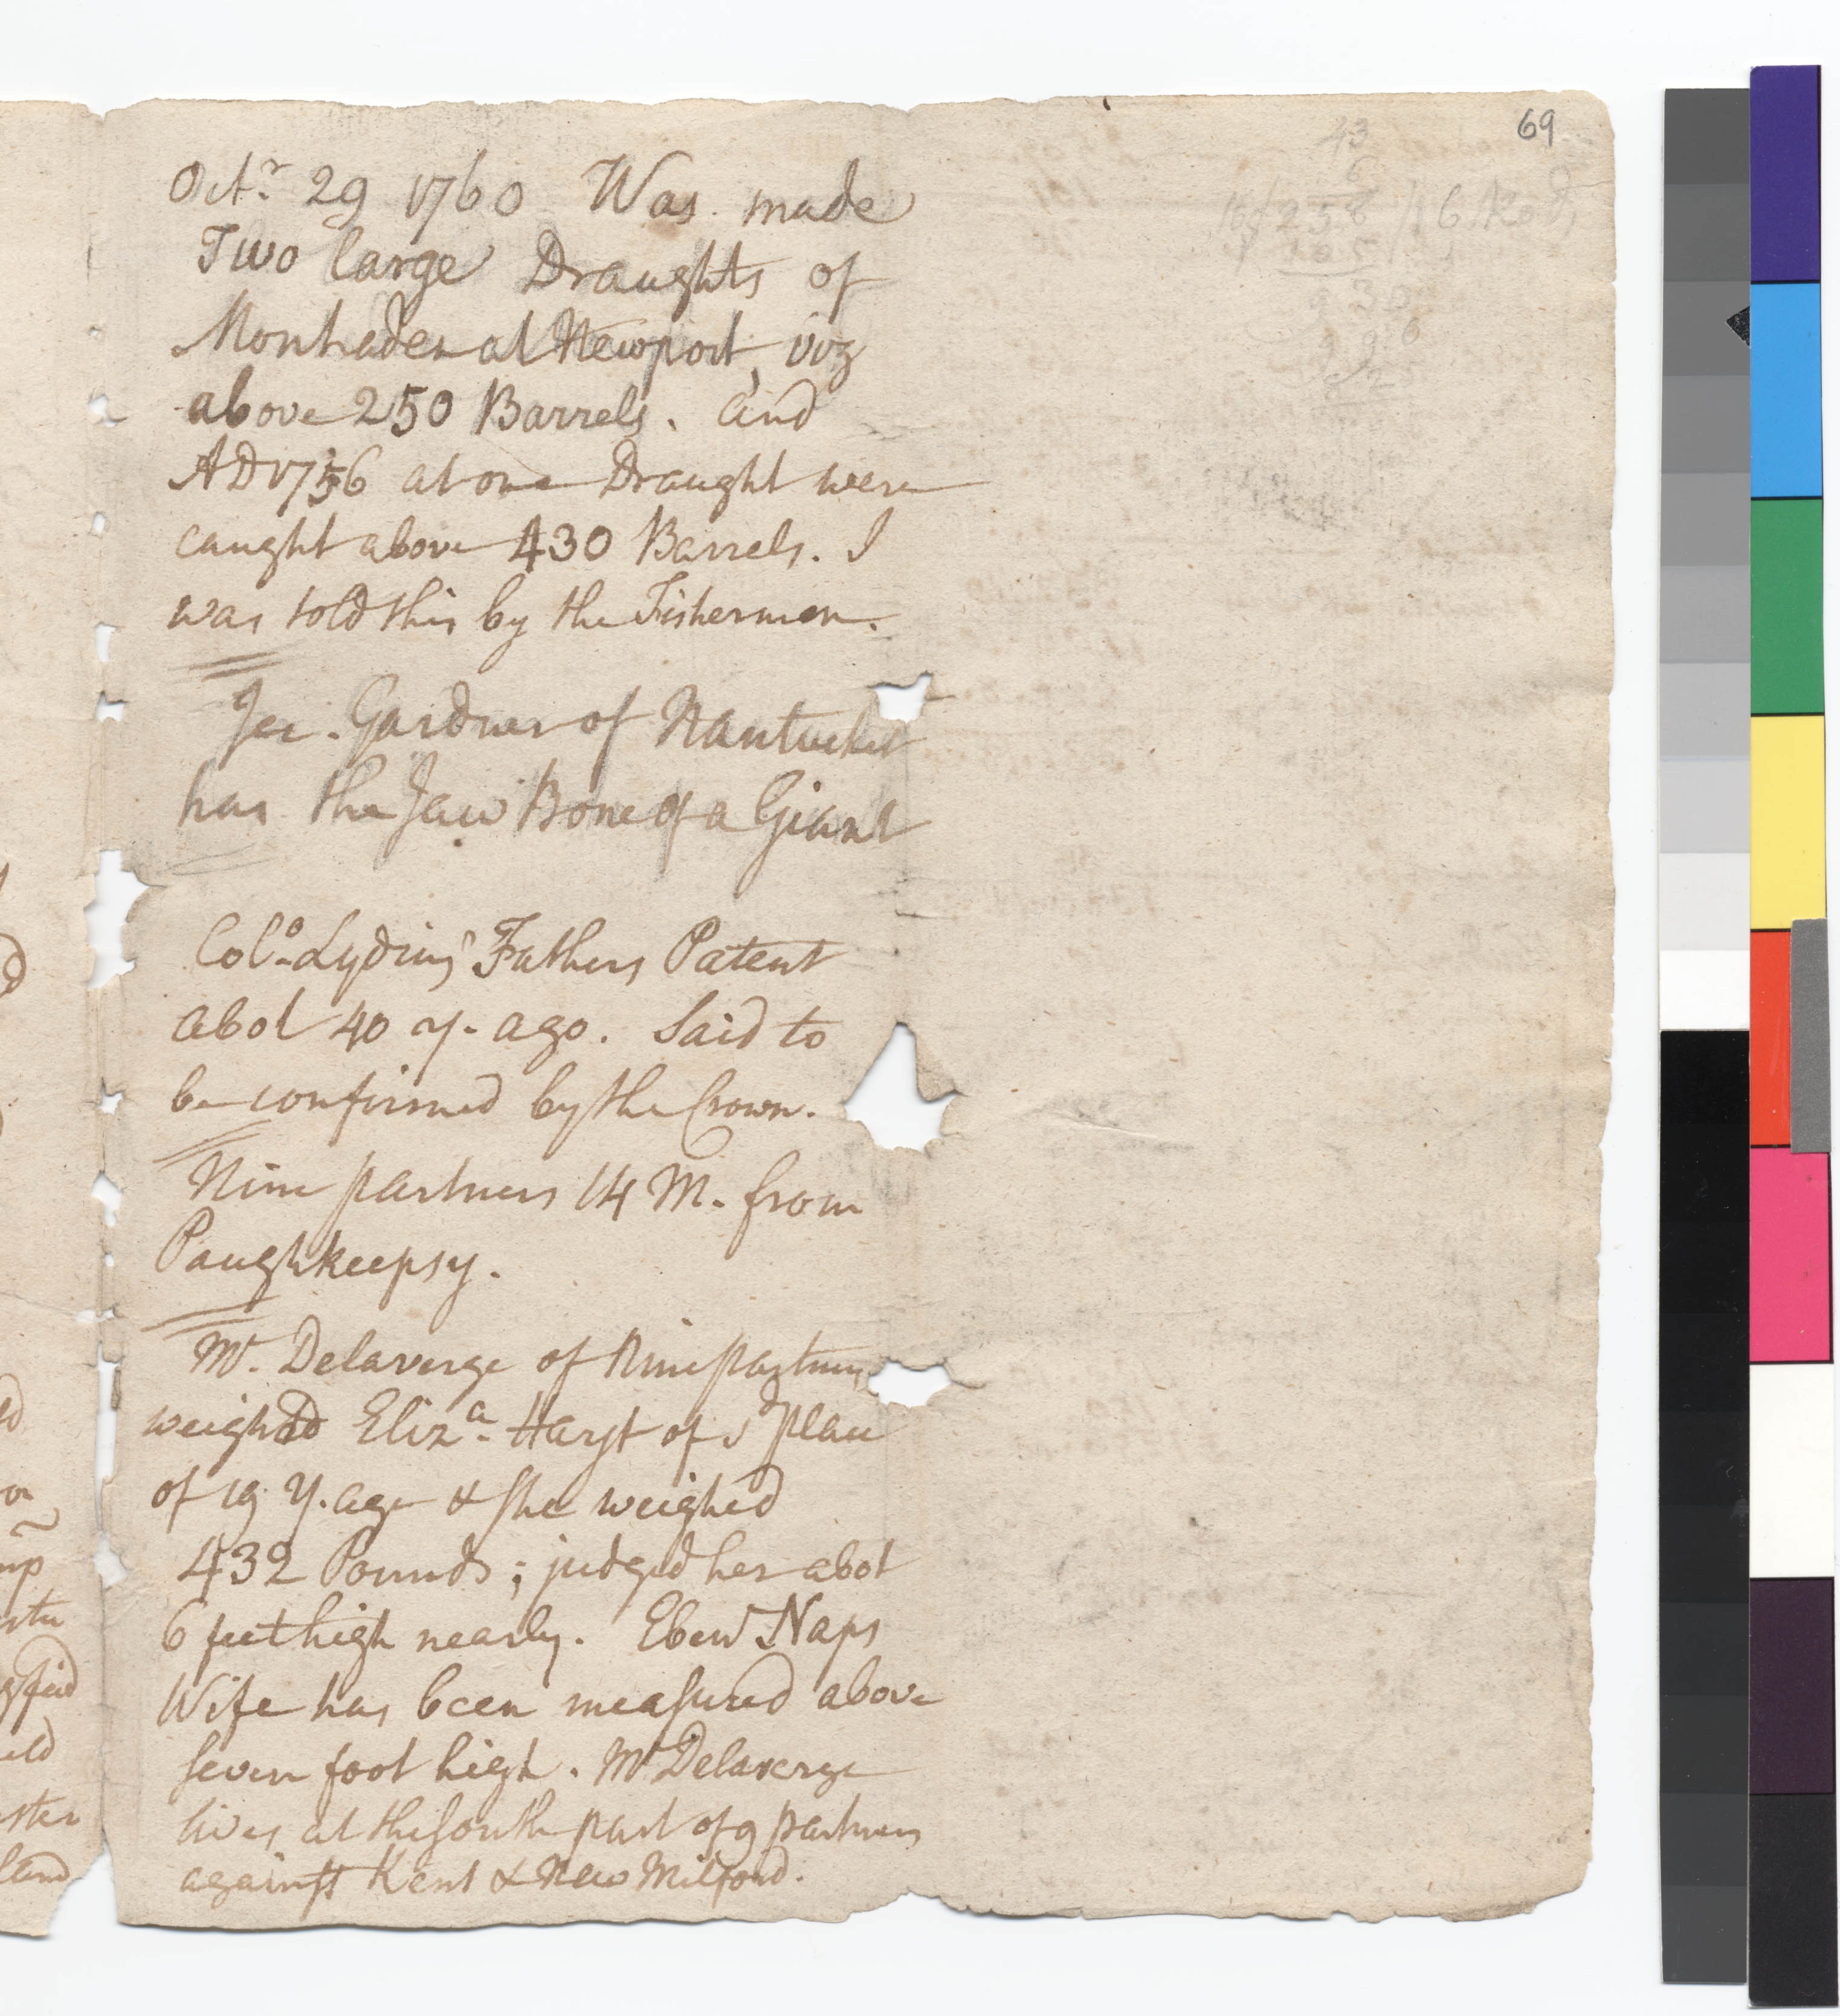 69
Octr. 29 1760 Was made
Two large Draughts of
Monhaden at Newport, viz
above 250 Barrels. and
AD 1756 at one Draught were
caught above 430 Barrels. I
was told this by the Fishermen.
Gardner of Nantucket
has the Jaw Bone of a Giant
Colo. Lydius' Fathers Patent
abot 40 y. ago. Said to
be confirmed by the Crown.
Nine partners 14 M. from
Paughkeepsy.
Mr. Delaverge of Nine partners
weighed Eliza. of sd place
of 19 y. age & she weighed
432 Pounds; judged her abot
6 feet high nearly. Naps
Wife has been measured above
seven foot high. Mr Delaverge
lives at the South part of 9 partners
against Kent & New Milford.